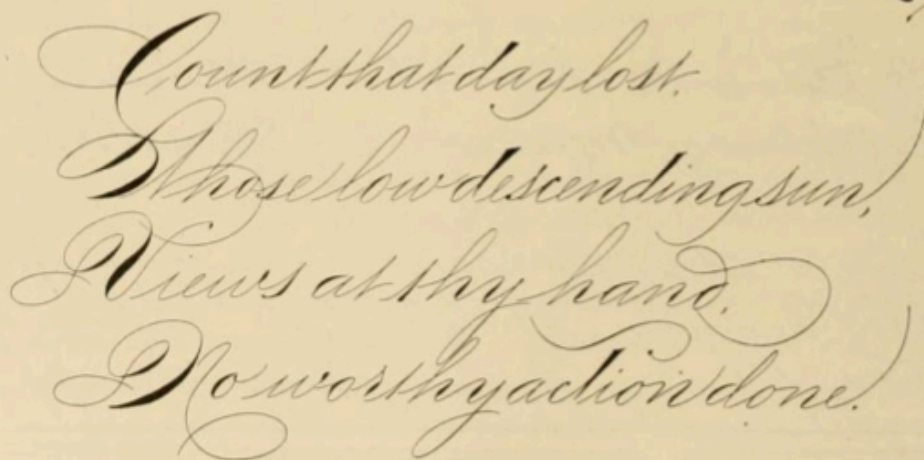 Count that day lost.
Whose low descending sun,
Views at thy hand,
No worthy action done.